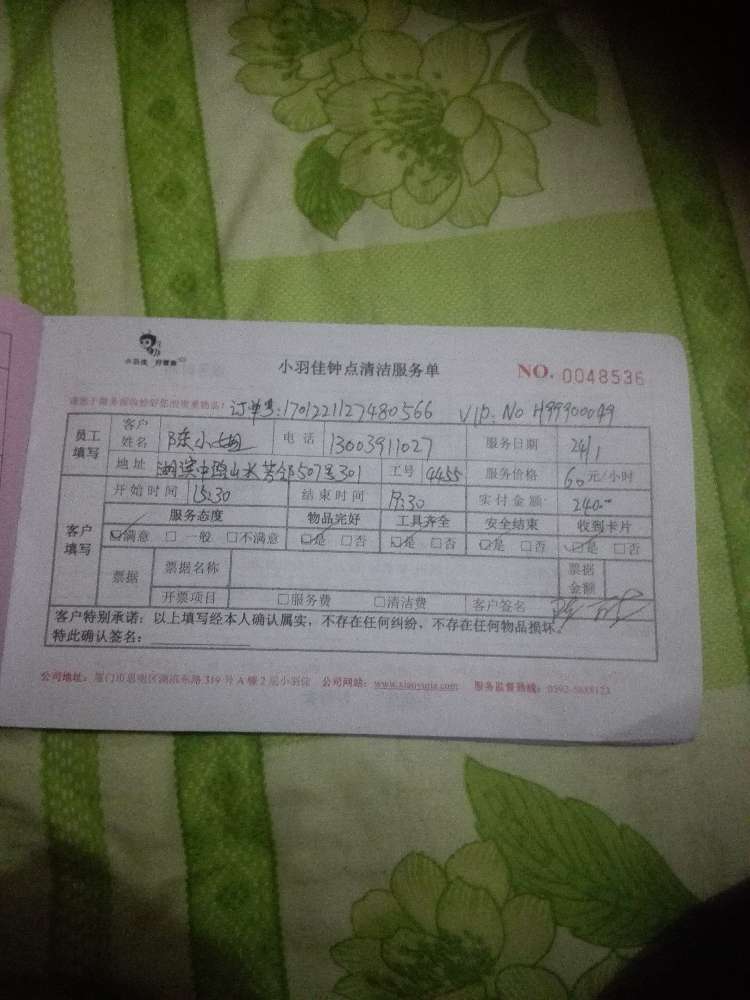 小羽佳 好管家
小羽佳钟点清洁服务单 NO. 0048536
请您于服务前收检好您的贵重物品！ 订单号:1701221127480566 VIP: No H99900049
员工填写 客户姓名 陈小姐 电话 13003911027 服务日期 24/1
地址 湖滨中路山水芳邻507号301 工号 4455 服务价格 60元/小时
开始时间 15:30 结束时间 17:30 实付金额 240.00
客户填写 服务态度 物品完好 工具齐全 安全结束 收到卡片
☑满意 □一般 □不满意 ☑是 □否 ☑是 □否 ☑是 □否 ☑是 □否
票据 票据名称 票据金额
开票项目 □服务费 □清洁费 客户签名
客户特别承诺：以上填写经本人确认属实，不存在任何纠纷，不存在任何物品损坏。
特此确认签名：
公司地址：厦门市思明区湖滨东路319号A幢2层小羽佳 公司网站：www.xiaoyujia.com 服务监督热线：